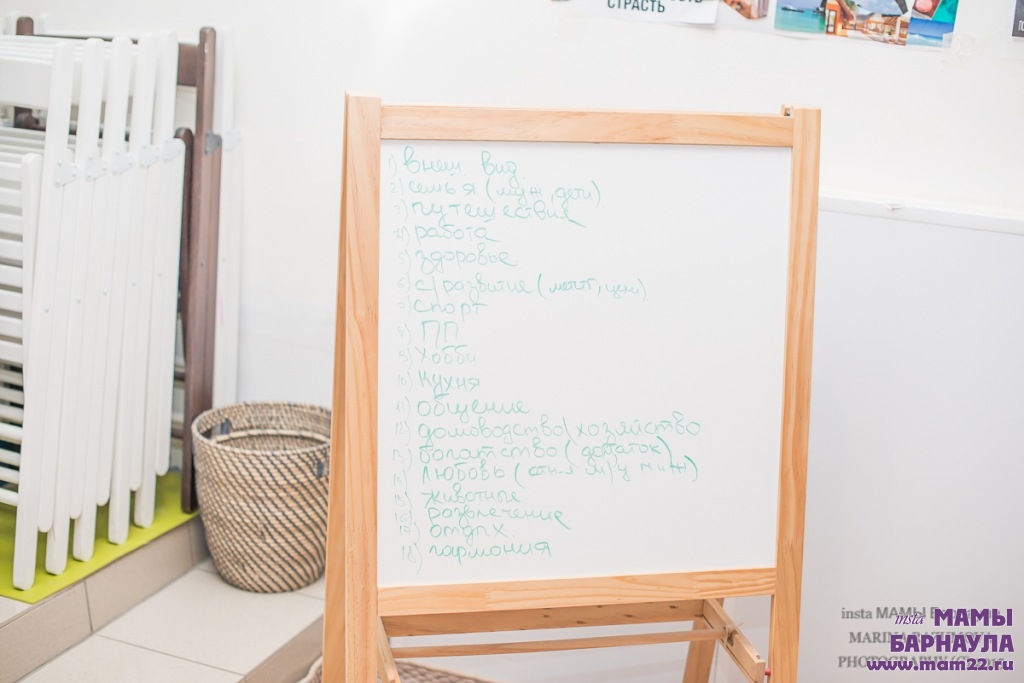 СТРАСТЬ
1) внеш. вид
2) семья (муж, дети)
3) путешествия
4) работа
5) здоровье
6) с/развитие (
7) спорт
8) ПП
9) хобби
10) кухня
11) общение
12) домоводство/хозяйство
13) богатство (достаток)
14) любовь (отн-я м/у м и ж)
15) животные
16) развлечение
17) отдых
18) гармония
insta МАМЫ
insta МАМЫ
БАРНАУЛА
PHOTOGRAPHY
www.mam22.ru